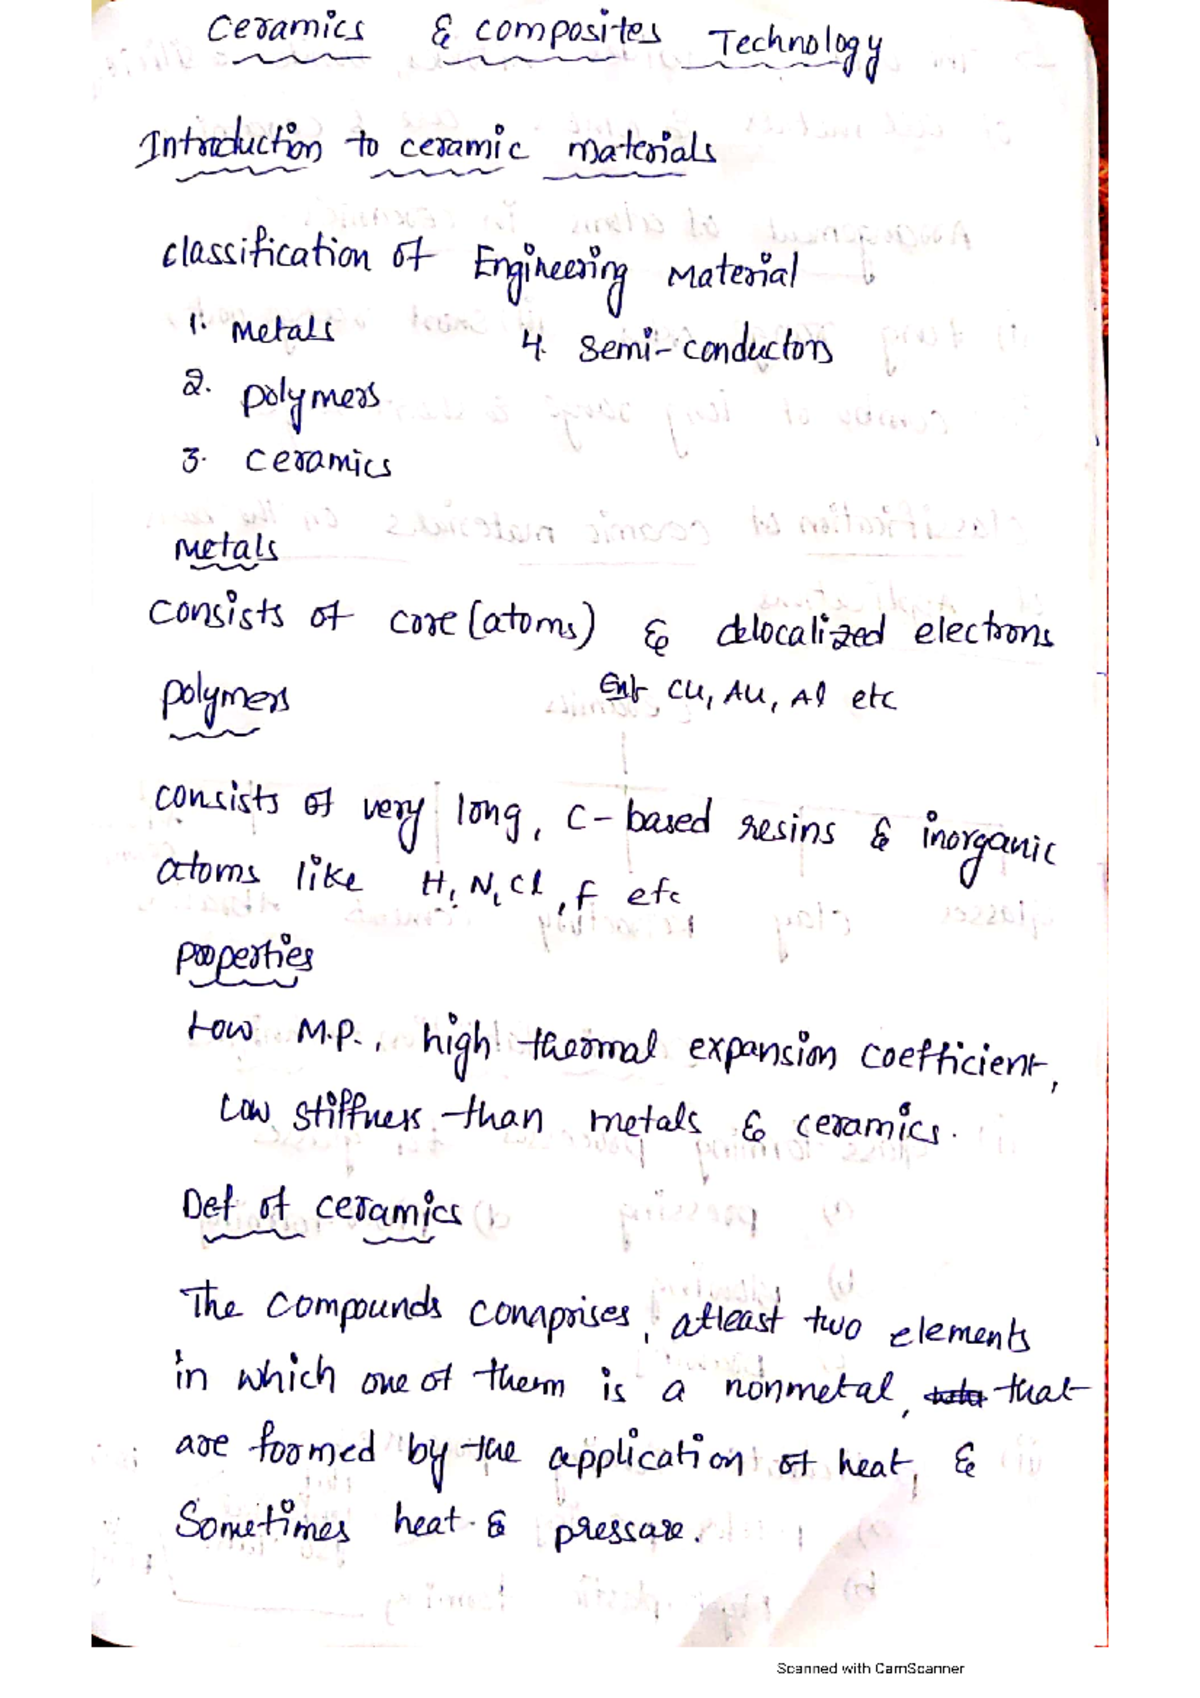 Ceramics & composites Technology
Introduction to ceramic materials
classification of Engineering Material
1. Metals
4. Semi-conductors
2. polymers
3. Ceramics
Metals
Consists of core (atoms) & delocalized electrons
Cu, Au, Al etc
polymers
consists of very long, C-based resins & inorganic
atoms like H, N, Cl, F etc
properties
Low M.P., high thermal expansion coefficient,
Low stiffness than metals & ceramics.
Def of ceramics
The compounds comprises, atleast two elements
in which one of them is a nonmetal, that
are formed by the application of heat, &
Sometimes heat & pressure.
Scanned with CamScanner